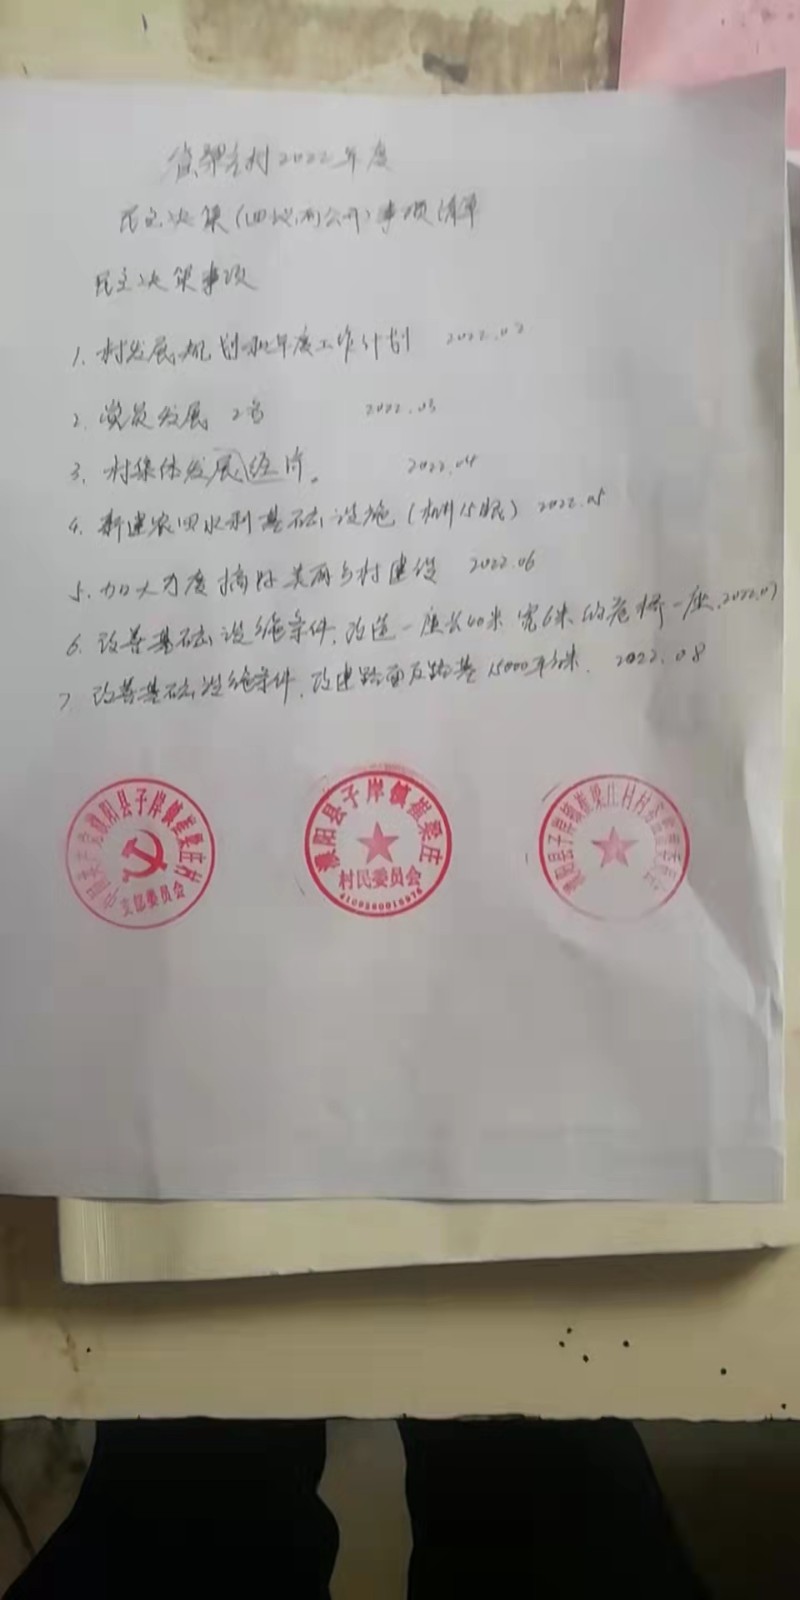 崔梁庄村2022年度
民主决策(四议两公开)事项清单
民主决策事项
1. 村发展规划和年度工作计划 2022.02
2. 党员发展 2名 2022.03
3. 村集体发展经济。 2022.04
4. 新建农田水利基础设施(机井15眼) 2022.05
5. 加大力度搞好美丽乡村建设 2022.06
6. 改善基础设施条件,改造一座长40米宽6米的危桥一座.2022.07
7 改善基础设施条件,改建路面及路基15000平方米. 2022.08
中国共产党濮阳县子岸镇崔梁庄村
支部委员会
濮阳县子岸镇崔梁庄
村民委员会
濮阳县子岸镇崔梁庄村村务监督委员会